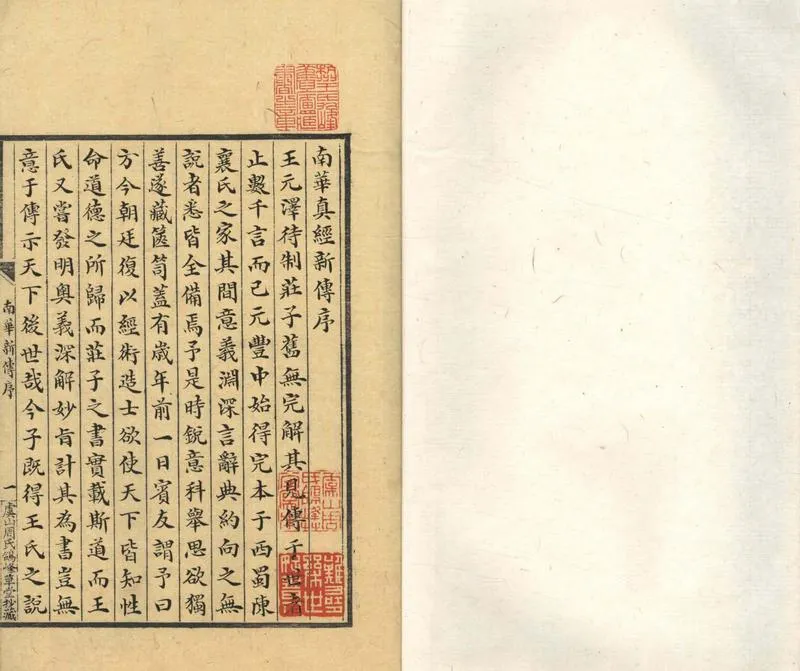 南華真經新傳序
王元澤待制莊子舊無完解其見傳于世者
止數千言而已元豐中始得完本于西蜀陳
襄氏之家其間意義淵深言辭典約向之無
說者悉皆全備焉予是時銳意科舉思欲獨
善遂藏篋笥蓋有歲年前一日賓友謂予曰
方今朝廷復以經術造士欲使天下皆知性
命道德之所歸而莊子之書實載斯道而王
氏又嘗發明奧義深解妙旨計其為書豈無
意于傳示天下後世哉今子既得王氏之說
南華新傳序
一
虞山周氏鴿峰草堂抄藏